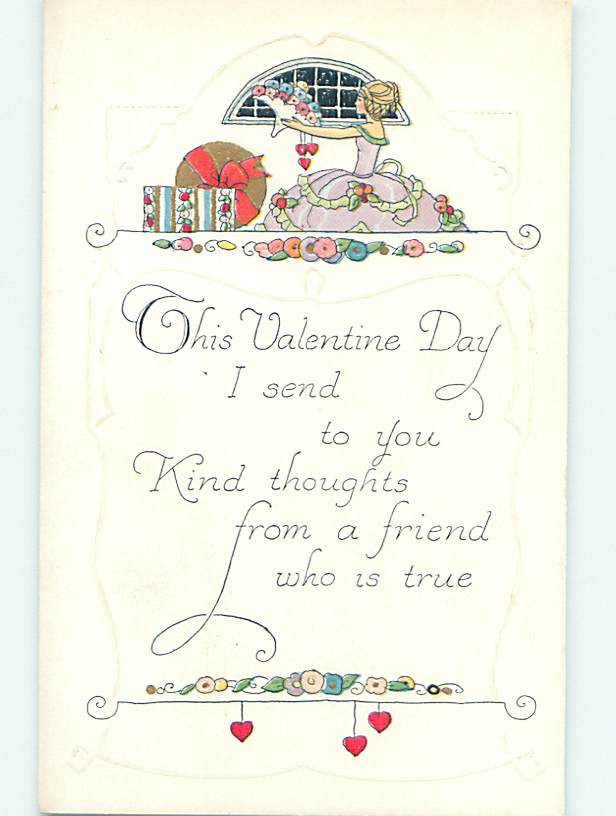 This Valentine Day
I send
to you
Kind thoughts
from a friend
who is true